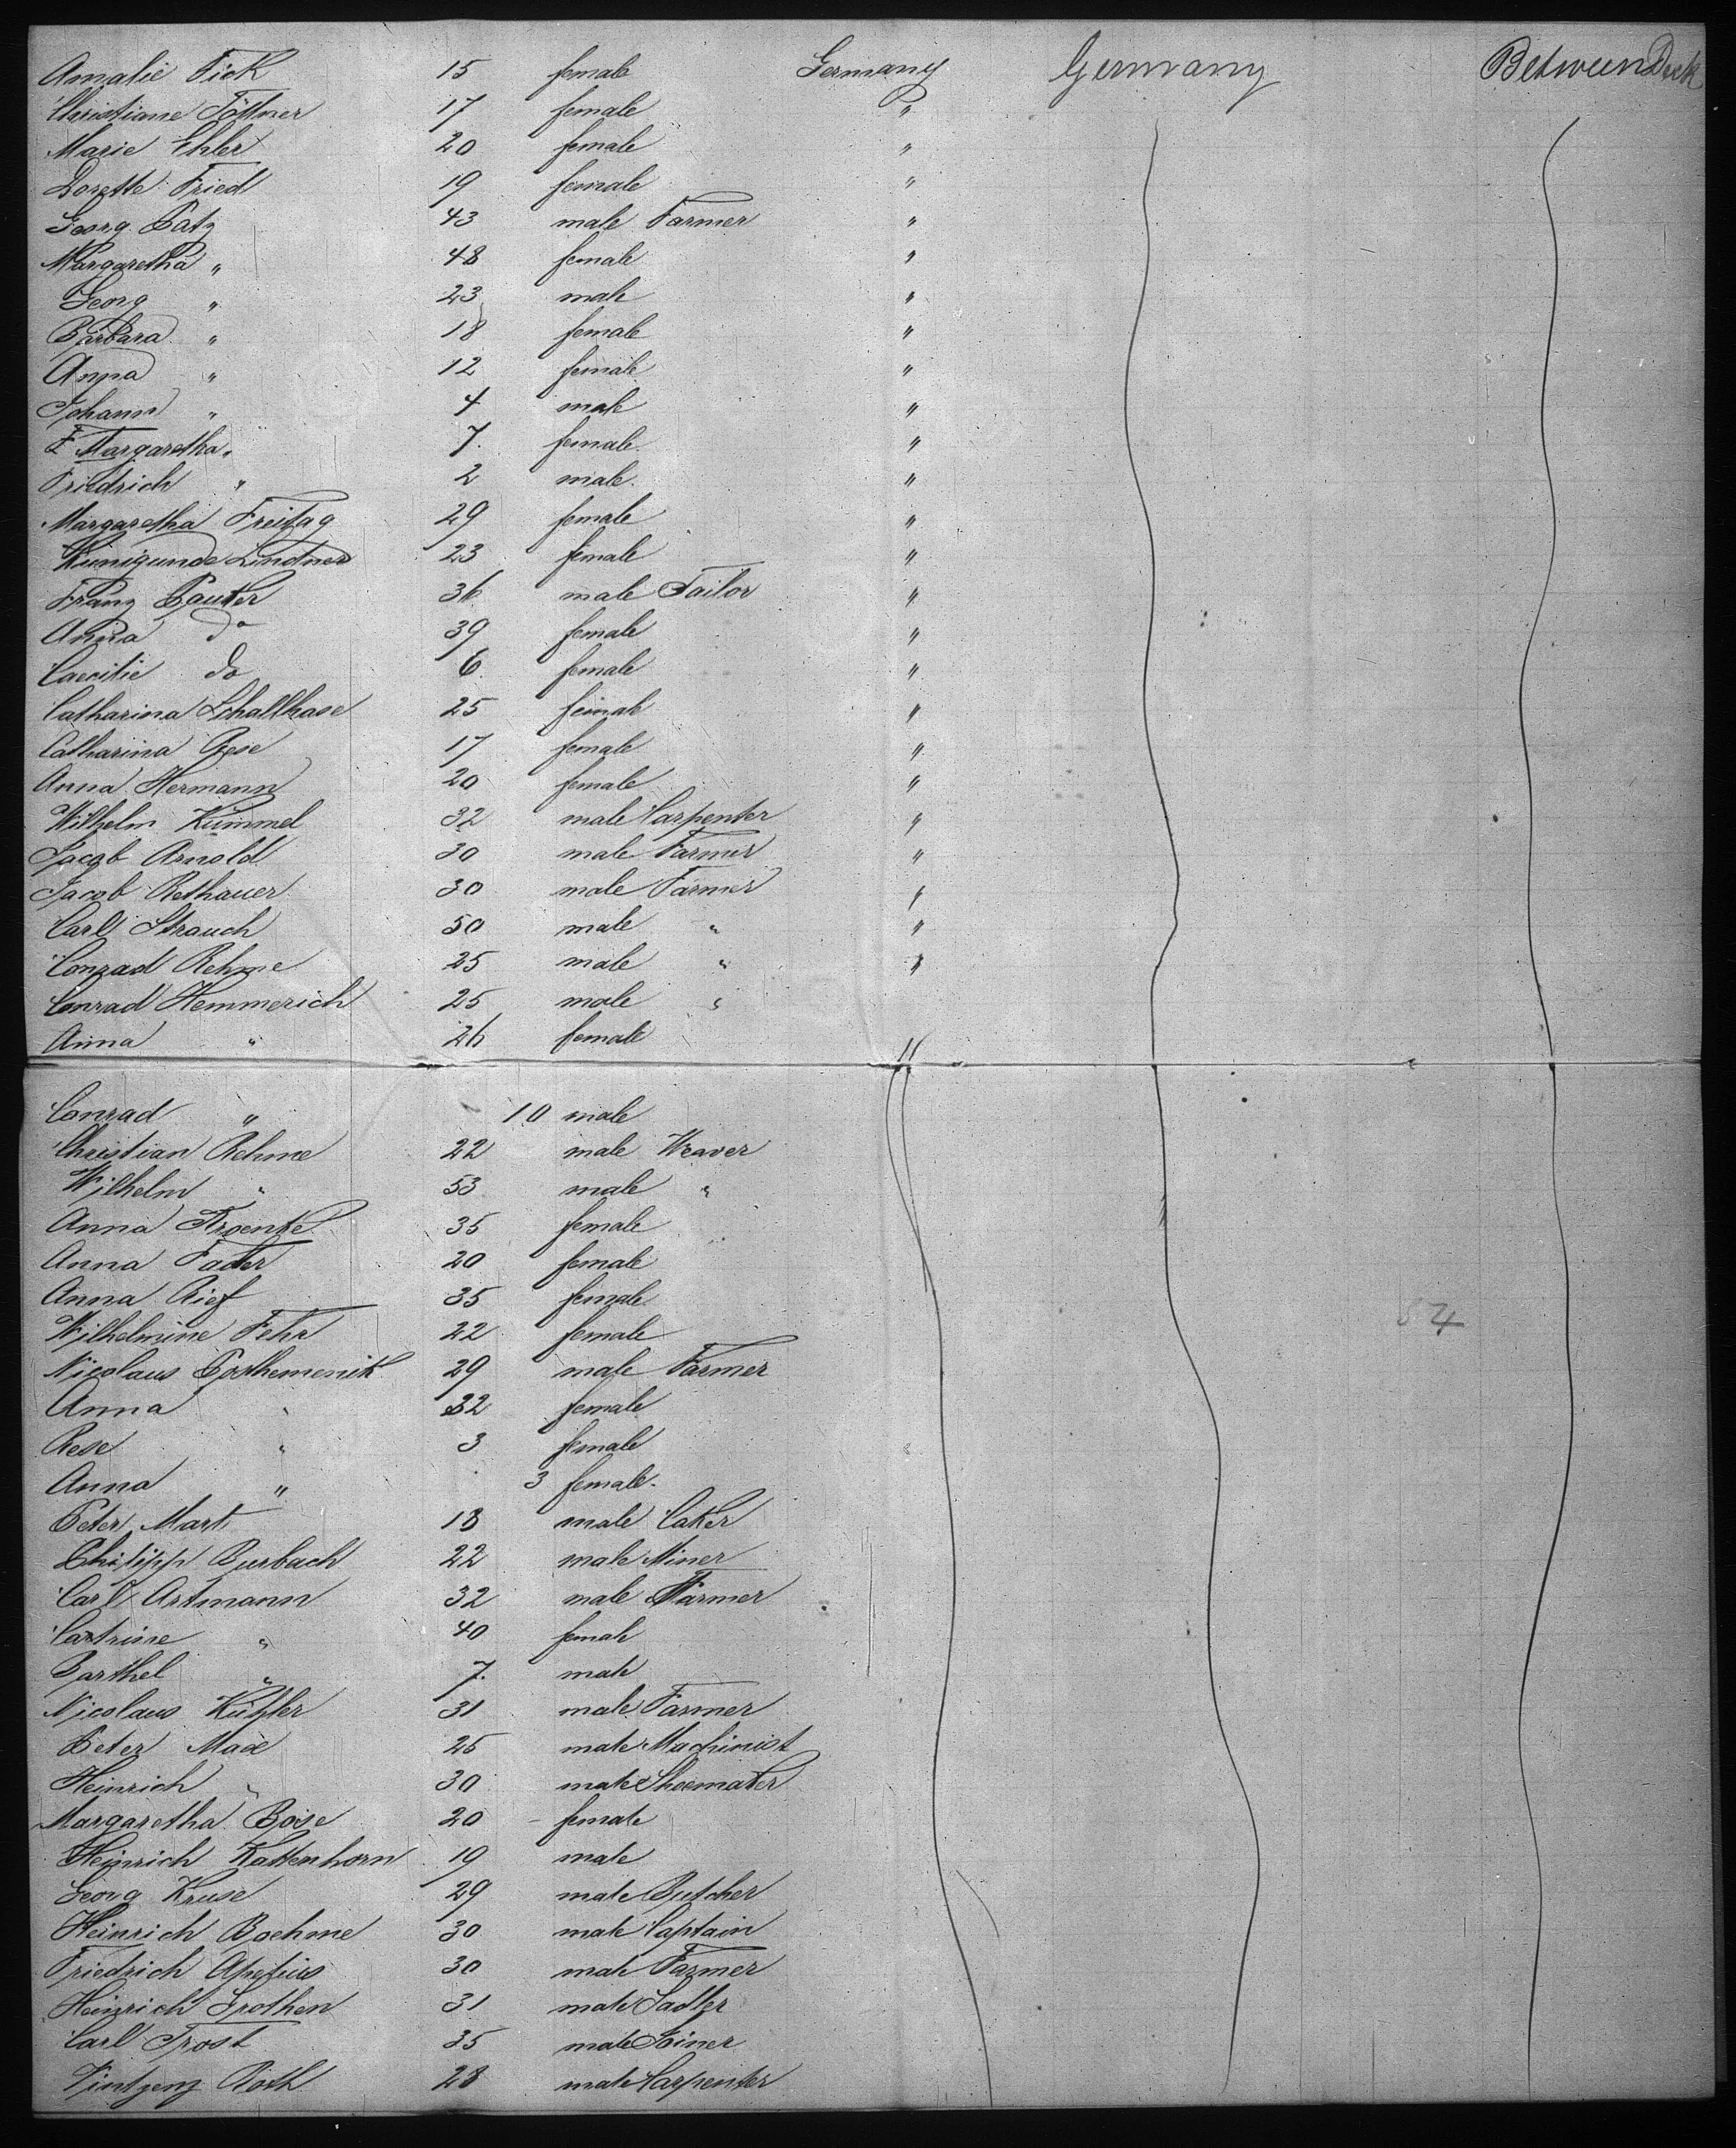 Amalie Fick 15 female Germany Germany Between Deck
Christiane Töttner 17 female "
Marie Ehler 20 female "
Dorette Fried 19 female "
Georg Patz 43 male Farmer "
Margaretha " 48 female "
Georg " 23 male "
Barbara " 18 female "
Anna " 12 female "
Johann " 4 male "
Margaretha " 7 female "
Friedrich " 2 male "
Margaretha Freitag 29 female "
Kunigunde Lindner 23 female "
Franz Pauker 36 male Tailor "
Anna do 39 female "
Caecilie do 6 female "
Catharina Schallhase 25 female "
Catharina Rese 17 female "
Anna Hermann 20 female "
Wilhelm Kümmel 32 male Carpenter "
Jacob Arnold 30 male Farmer "
Jacob Rethauer 30 male Farmer "
Carl Strauch 50 male " "
Conrad Rehme 25 male " "
Conrad Hemmerich 25 male "
Anna " 26 female "
Conrad " 10 male
Christian Rehme 22 male Weaver
Wilhelm " 53 male "
Anna 35 female
Anna Fader 20 female
Anna Rief 35 female
Wilhelmine Fehr 22 female
Nicolaus 29 male Farmer
Anna " 32 female
Rese " 3 female
Anna " 3 female
Peter Mart 18 male
Philipp Burbach 22 male Miner
Carl Artmann 32 male Farmer
Catrine " 40 female
Barthel " 7 male
Nicolaus Kühler 31 male Farmer
Peter Max 25 male Machinist
Heinrich " 30 male Shoemaker
Margaretha Böse 20 female
Heinrich Kattenhorn 19 male
Georg Kruse 29 male Butcher
Heinrich Boehme 30 male Captain
Friedrich 30 male Farmer
Heinrich Grothen 31 male Sadler
Carl Trost 35 male Joiner
Vintzenz Roth 28 male Carpenter